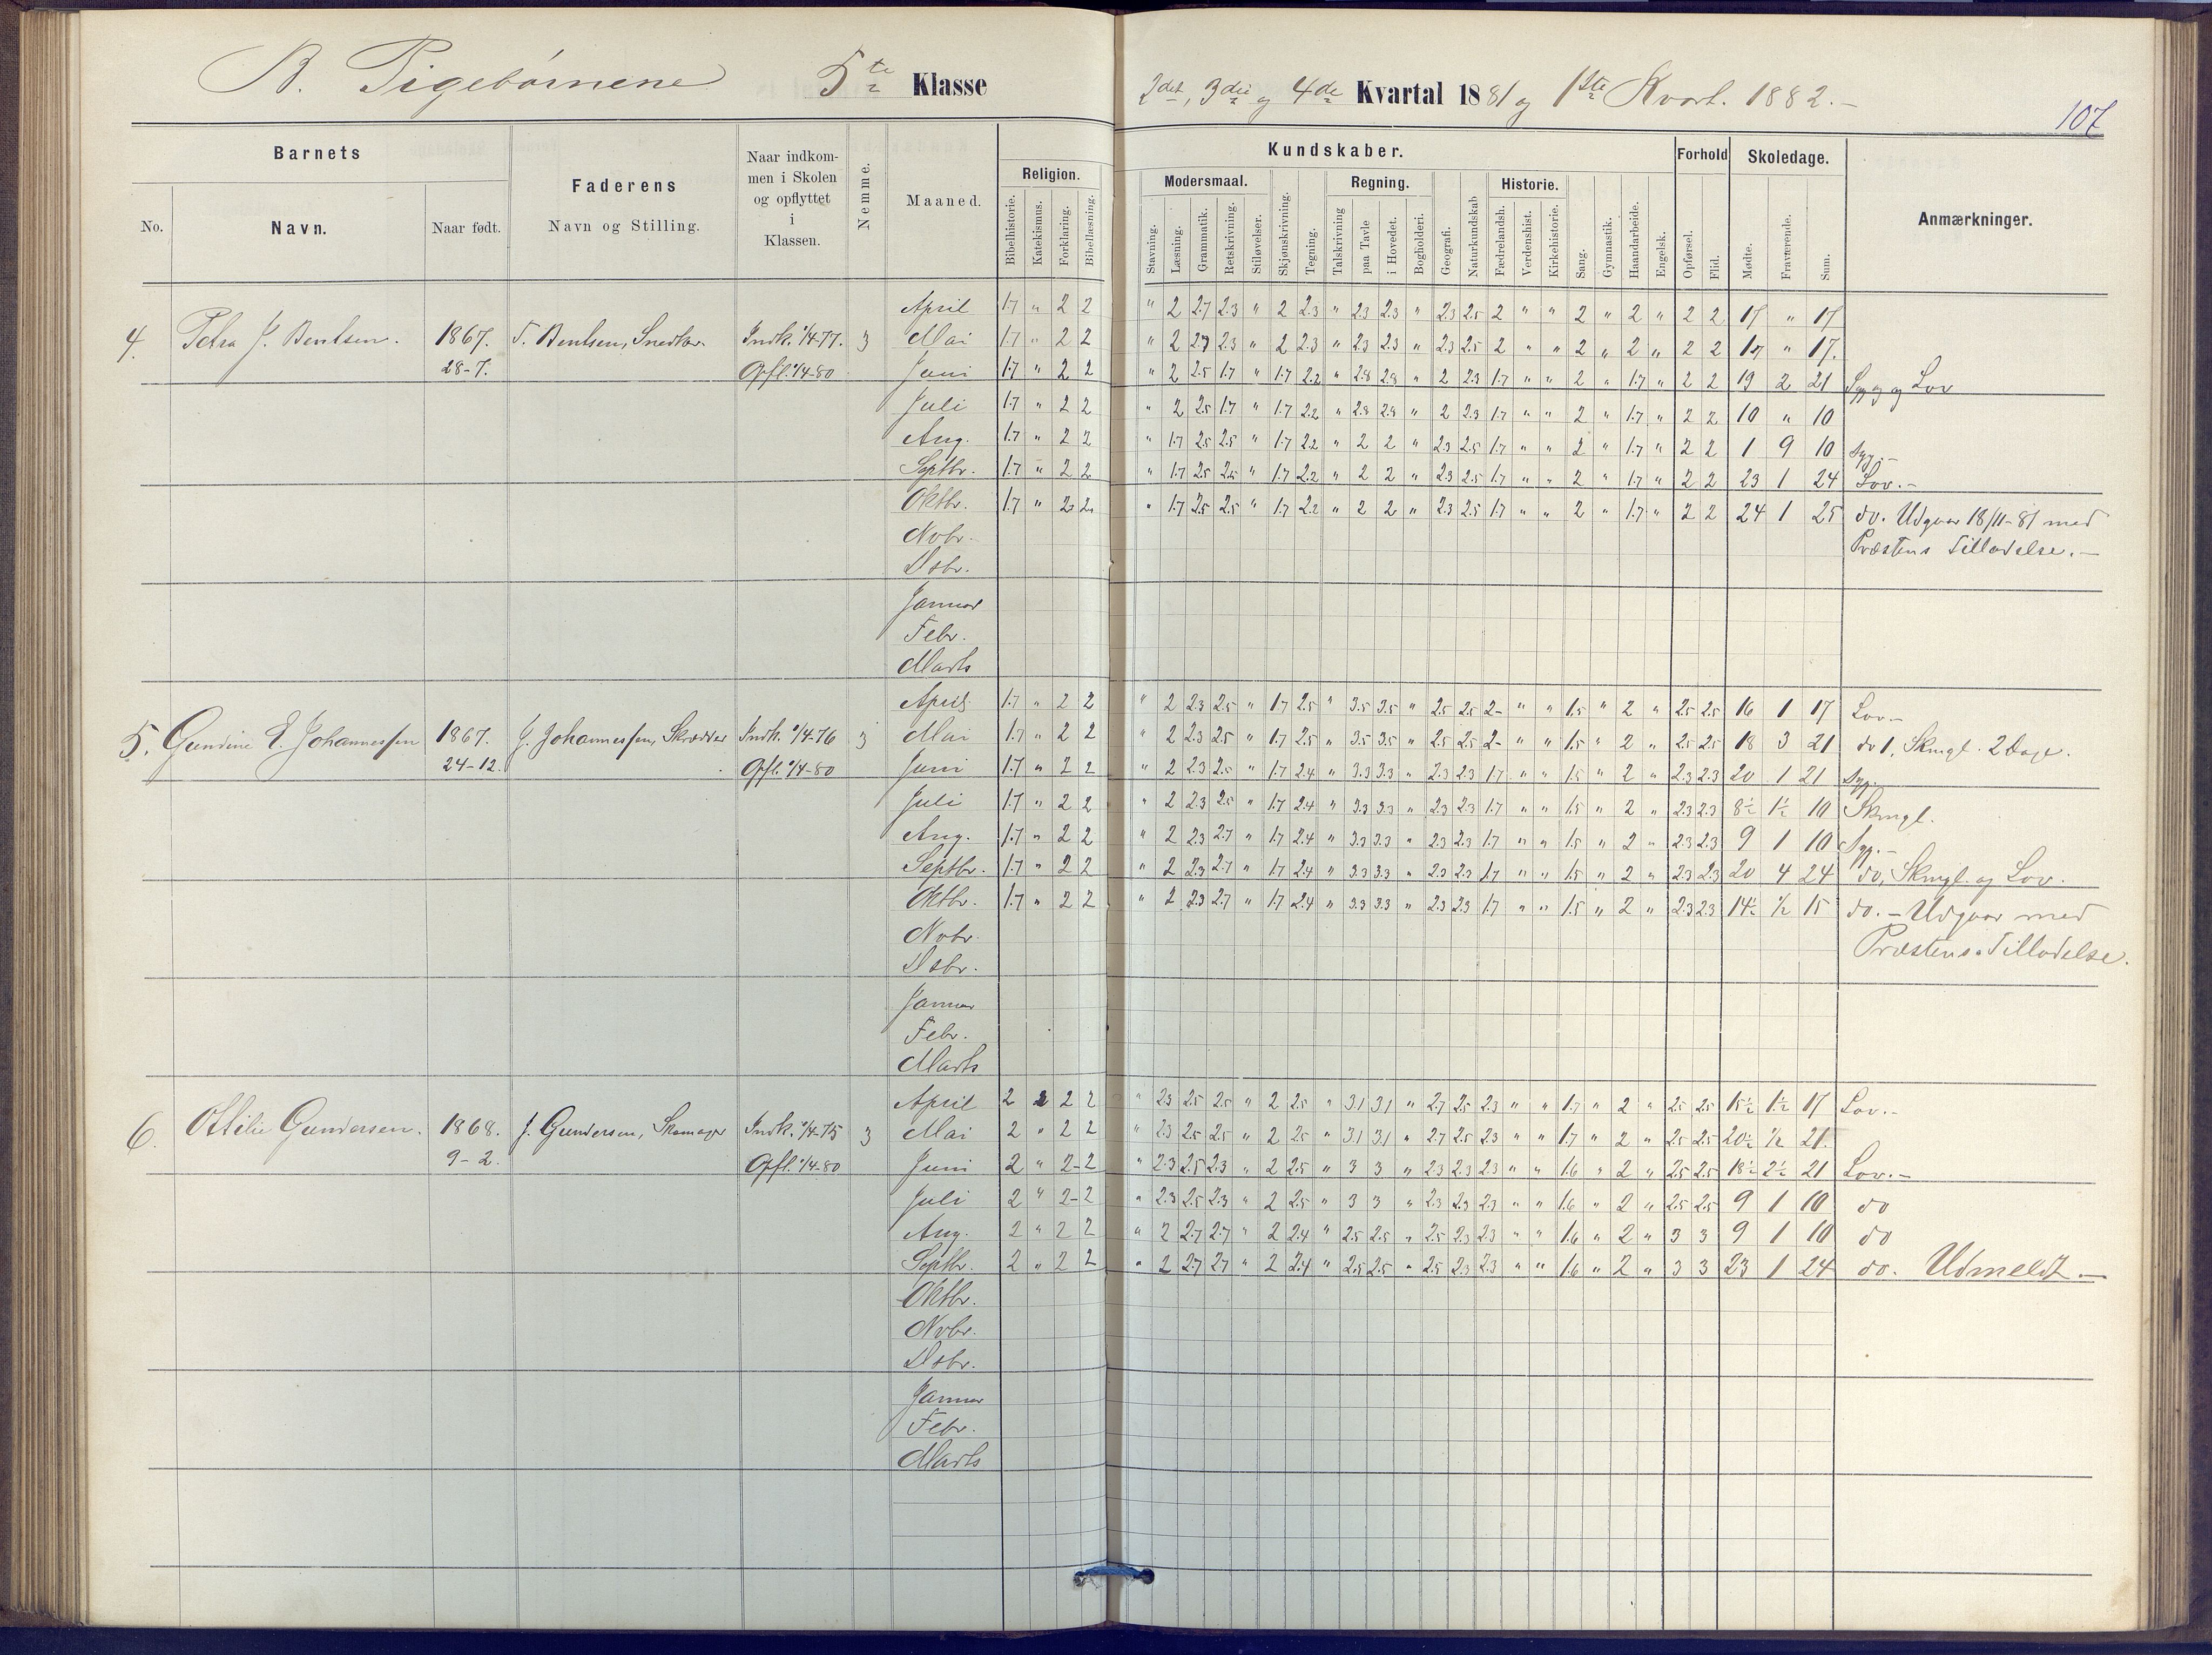 B. Pigebørnene 5te Klasse 2det, 3die og 4de Kvartal 1881 og 1ste Kvart. 1882.-
107
Barnets
No. Navn. Naar født.
Faderens
Navn og Stilling.
Naar indkom-
men i Skolen
og opflyttet
i
Klassen.
Nemme.
Maaned.
Kundskaber.
Religion.
Bibelhistorie. Katekismus. Forklaring. Bibellæsning.
Modersmaal.
Stavning. Læsning. Grammatik. Retskrivning. Stiløvelser.
Skjønskrivning. Tegning.
Regning.
Talskrivning paa Tavle i Hovedet. Bogholderi.
Geografi. Naturkundskab
Historie.
Fædrelandsh. Verdenshist. Kirkehistorie.
Sang. Gymnastik. Haandarbeide. Engelsk.
Forhold
Opførsel. Flid.
Skoledage.
Mødte. Fraværende. Sum.
Anmærkninger.
April 1.7 " 2 2 " 2 2.7 2.3 " 2 2.3 " 2.3 2.3 " 2.3 2.5 2 " " 2 " 2 " 2 2 17 " 17
4. Petra J. Bentsen. 1867. T. Bentsen, Snedker. Indk. 1/4-77. 3 Mai 1.7 " 2 2 " 2 2.7 2.3 " 2 2.3 " 2.3 2.3 " 2.3 2.5 2 " " 2 " 2 " 2 2 17 " 17.
28-7. Opfl. 1/4-80 Juni 1.7 " 2 2 " 2 2.5 1.7 " 1.7 2.2 " 2.8 2.8 " 2 2.3 1.7 " " 2 " 1.7 " 2 2 19 2 21 Syg og Lov
Juli 1.7 " 2 2 " 2 2.5 1.7 " 1.7 2.2 " 2.8 2.8 " 2 2.3 1.7 " " 2 " 1.7 " 2 2 10 " 10
Aug. 1.7 " 2 2 " 1.7 2.5 2.5 " 1.7 2.2 " 2 2 " 2.3 2.5 1.7 " " 2 " 1.7 " 2 2 1 9 10 Syg.-
Septbr. 1.7 " 2 2 " 1.7 2.5 2.5 " 1.7 2.2 " 2 2 " 2.3 2.5 1.7 " " 2 " 1.7 " 2 2 23 1 24 Lov.-
Oktbr. 1.7 " 2 2 " 1.7 2.5 2.5 " 1.7 2.2 " 2 2 " 2.3 2.5 1.7 " " 2 " 1.7 " 2 2 24 1 25 do. Udgaar 18/11-81 med
Novbr. Præstens Tilladelse.-
Dsbr.
Januar
Febr.
Marts
April 1.7 " 2 2 " 2 2.3 2.5 " 1.7 2.5 " 3.5 3.5 " 2.5 2.5 2- " " 1.5 " 2 " 2.5 2.5 16 1 17 Lov.-
5. Gundine E. Johannessen 1867. J. Johannessen, Skrædder Indk. 1/4-76 3 Mai 1.7 " 2 2 " 2 2.3 2.5 " 1.7 2.5 " 3.5 3.5 " 2.5 2.5 2- " " 1.5 " 2 " 2.5 2.5 18 3 21 do 1, Skmgl. 2 Dage.
24-12. Opfl. 1/4-80 Juni 1.7 " 2 2 " 2 2.3 2.5 " 1.7 2.4 " 3.3 3.3 " 2.3 2.3 1.7 " " 1.5 " 2 " 2.3 2.3 20 1 21 Syg.
Juli 1.7 " 2 2 " 2 2.3 2.5 " 1.7 2.4 " 3.3 3.3 " 2.3 2.3 1.7 " " 1.5 " 2 " 2.3 2.3 8½ 1½ 10 Skmgl.
Aug. 1.7 " 2 2 " 2 2.3 2.7 " 1.7 2.4 " 3.3 3.3 " 2.3 2.3 1.7 " " 1.5 " 2 " 2.3 2.3 9 1 10 Syg.-
Septbr. 1.7 " 2 2 " 2 2.3 2.7 " 1.7 2.4 " 3.3 3.3 " 2.3 2.3 1.7 " " 1.5 " 2 " 2.3 2.3 20 4 24 do, Skmgl. og Lov.
Oktbr. 1.7 " 2 2 " 2 2.3 2.7 " 1.7 2.4 " 3.3 3.3 " 2.3 2.3 1.7 " " 1.5 " 2 " 2.3 2.3 14½ ½ 15 do. - Udgaar med
Novbr. Præstens Tilladelse.
Dsbr.
Januar
Febr.
Marts
April 2 2 2 2 " 2.3 2.5 2.5 " 2 2.5 " 3.1 3.1 " 2.7 2.5 2.3 " " 1.7 " 2 " 2.5 2.5 15½ 1½ 17 Lov.-
6. Ottilie Gundersen. 1868. J. Gundersen, Skomager Indk. 1/4-75 3 Mai 2 " 2 2 " 2.3 2.5 2.5 " 2 2.5 " 3.1 3.1 " 2.7 2.5 2.3 " " 1.7 " 2 " 2.5 2.5 20½ ½ 21.
9-2. Opfl. 1/4-80 Juni 2 " 2-2 " 2.3 2.5 2.3 " 2 2.5 " 3 3 " 2.3 2.3 2.3 " " 1.6 " 2 " 2.5 2.5 18½ 2½ 21 Lov.-
Juli 2 " 2-2 " 2.3 2.5 2.3 " 2 2.5 " 3 3 " 2.3 2.3 2.3 " " 1.6 " 2 " 2.5 2.5 9 1 10 do
Aug. 2 " 2 2 " 2 2.7 2.7 " 2 2.4 " 2.5 2.5 " 2.5 2.3 2.3 " " 1.6 " 2 " 3 3 9 1 10 do
Septbr. 2 " 2 2 " 2 2.7 2.7 " 2 2.4 " 2.5 2.5 " 2.5 2.3 2.3 " " 1.6 " 2 " 3 3 23 1 24 do. Udmeldt.-
Oktbr.
Novbr.
Dsbr.
Januar
Febr.
Marts